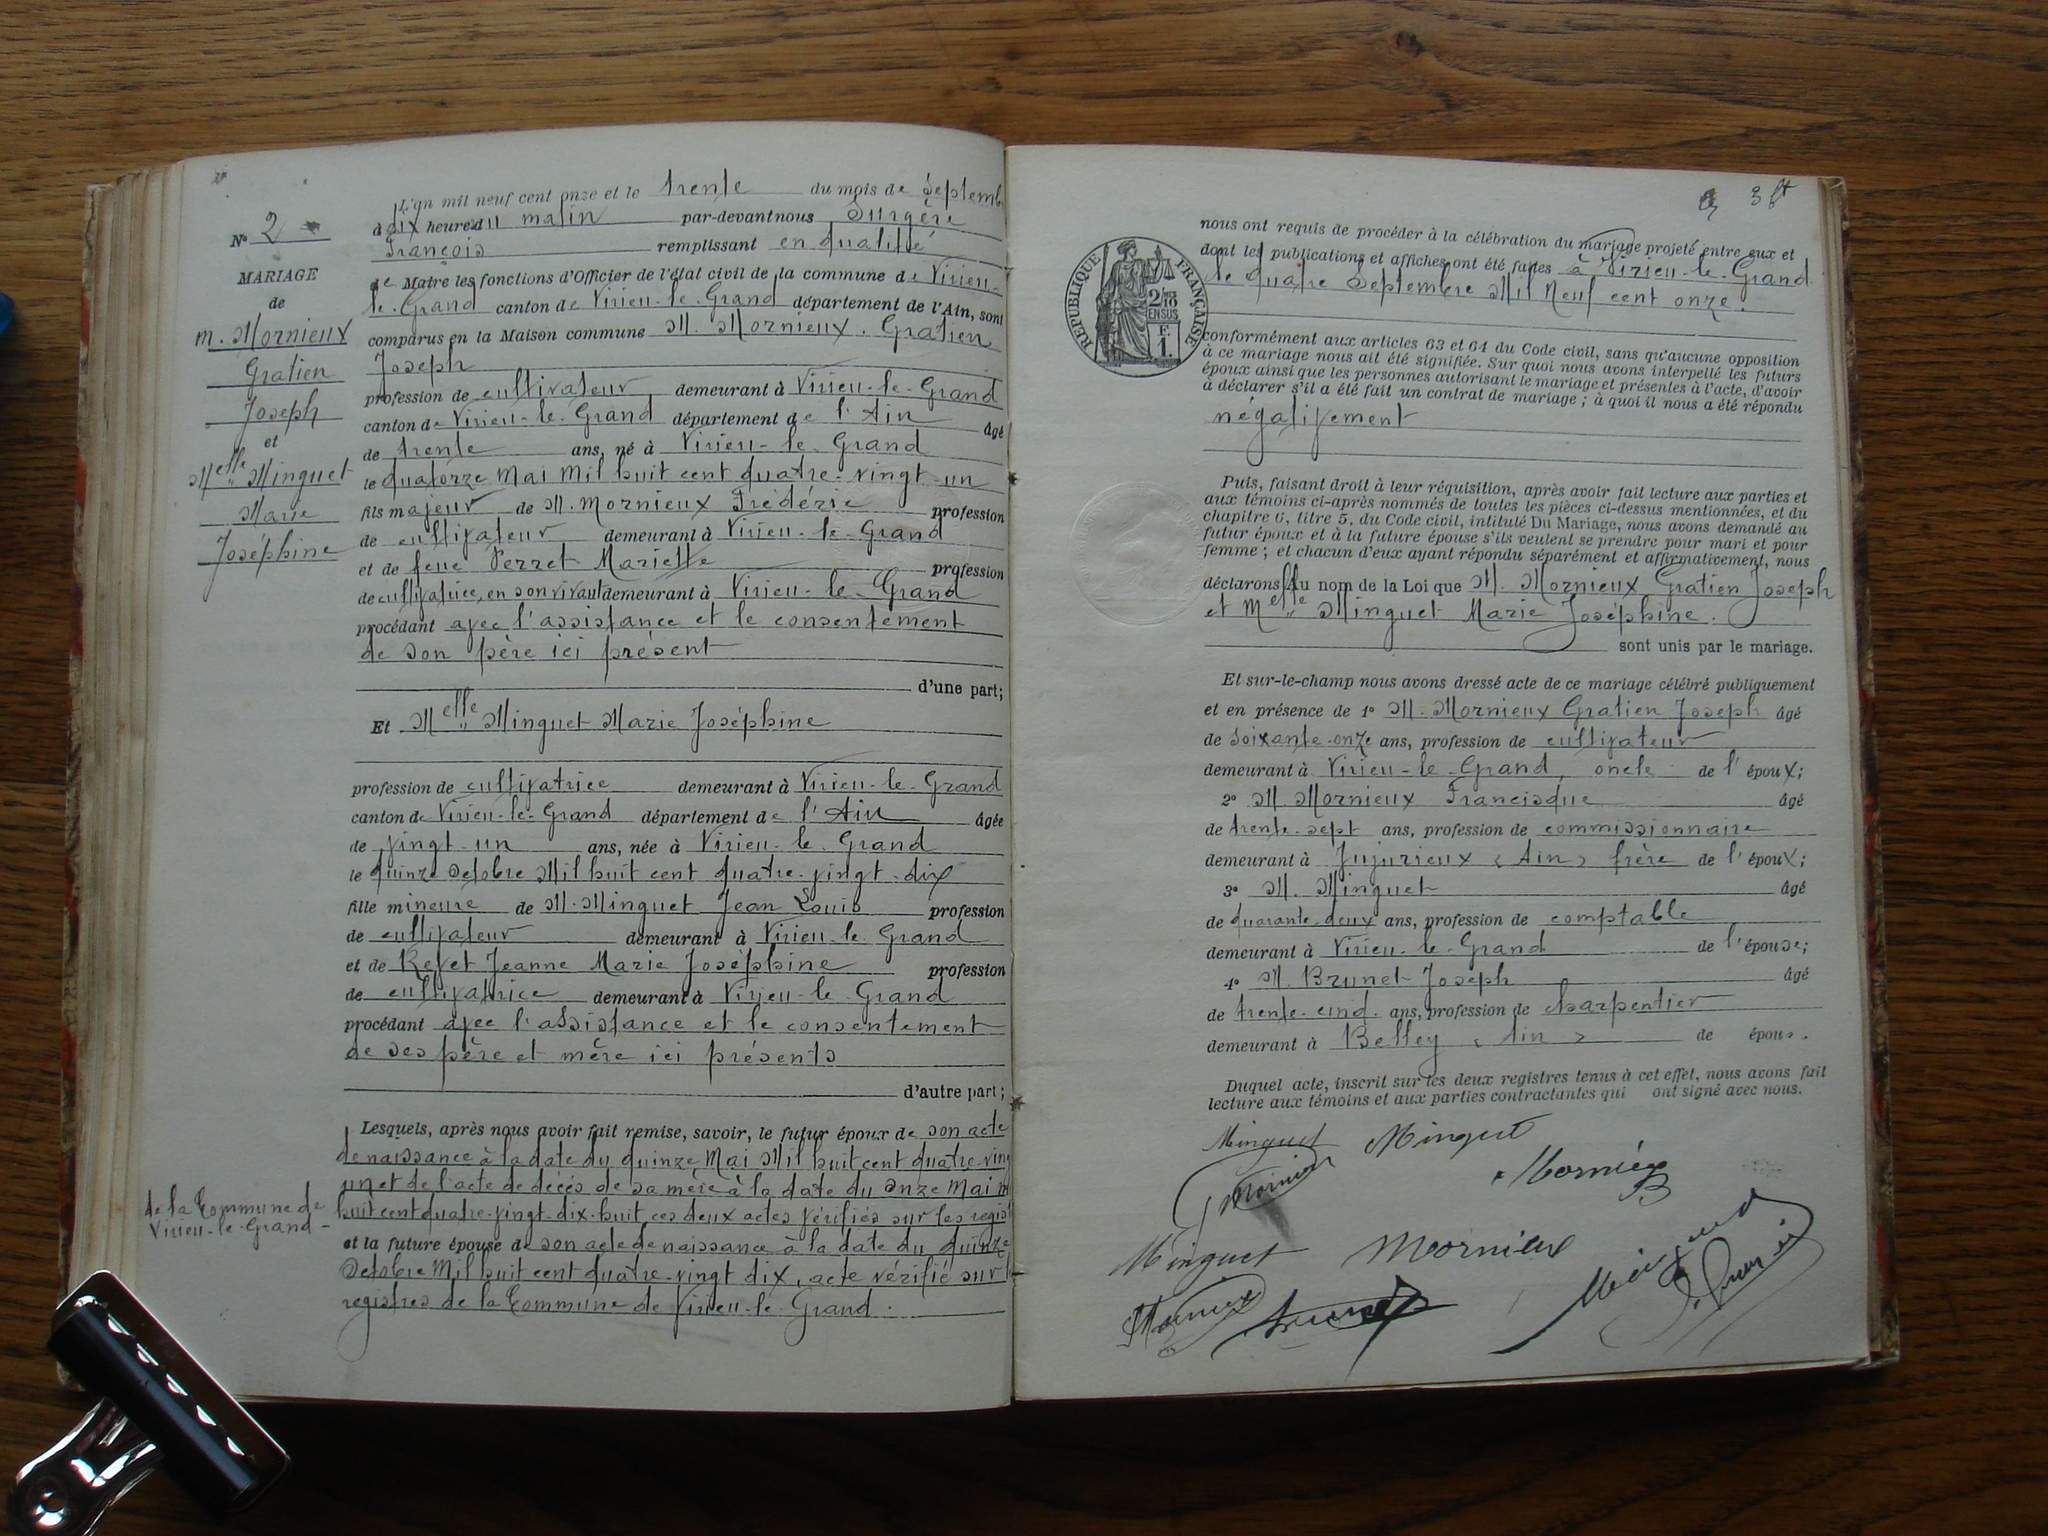 L'an mil neuf cent onze et le trente du mois de Septemb
à dix heures du matin par-devant nous Surgère
François remplissant en qualité
de Maire les fonctions d'Officier de l'état civil de la commune de Virieu-
le-Grand canton de Virieu-le-Grand département de l'Ain, sont
comparus en la Maison commune M. Mornieux Gratien
Joseph
profession de cultivateur demeurant à Virieu-le-Grand
canton de Virieu-le-Grand département de l'Ain âgé
de trente ans, né à Virieu-le-Grand
le quatorze Mai Mil huit cent quatre-vingt-un
fils majeur de M. Mornieux Frédéric profession
de cultivateur demeurant à Virieu-le-Grand
et de feue Perret Mariette profession
de cultivatrice, en son vivant demeurant à Virieu-le-Grand
procédant avec l'assistance et le consentement
de son père ici présent
d'une part;
Et Melle Minguet Marie Joséphine
profession de cultivatrice demeurant à Virieu-le-Grand
canton de Virieu-le-Grand département de l'Ain âgée
de vingt-un ans, née à Virieu-le-Grand
le quinze octobre Mil huit cent quatre-vingt-dix
fille mineure de M. Minguet Jean Louis profession
de cultivateur demeurant à Virieu-le-Grand
et de Revet Jeanne Marie Joséphine profession
de cultivatrice demeurant à Virieu-le-Grand
procédant avec l'assistance et le consentement
de ses père et mère ici présents
d'autre part;
Lesquels, après nous avoir fait remise, savoir, le futur époux de son acte
de naissance à la date du quinze Mai Mil huit cent quatre-ving
un et de l'acte de décès de sa mère à la date du onze Mai
huit cent quatre-vingt-dix-huit ces deux actes vérifiés sur les regis
et la future épouse de son acte de naissance à la date du quinze
Octobre Mil huit cent quatre-vingt dix, acte vérifié sur
registres de la Commune de Virieu-le-Grand.
No 2
MARIAGE
de
M. Mornieux
Gratien
Joseph
et
Melle Minguet
Marie
Joséphine
de la Commune de
Virieu-le-Grand-
3
nous ont requis de procéder à la célébration du mariage projeté entre eux et
dont les publications et affiches ont été faites à Virieu-le-Grand
le quatre Septembre Mil Neuf cent onze.
REPUBLIQUE FRANÇAISE
2/10
EN SUS
F.
1.
conformément aux articles 63 et 64 du Code civil, sans qu'aucune opposition
à ce mariage nous ait été signifiée. Sur quoi nous avons interpellé les futurs
époux ainsi que les personnes autorisant le mariage et présentes à l'acte, d'avoir
à déclarer s'il a été fait un contrat de mariage; à quoi il nous a été répondu
négativement
Puis, faisant droit à leur réquisition, après avoir fait lecture aux parties et
aux témoins ci-après nommés de toutes les pièces ci-dessus mentionnées, et du
chapitre 6, titre 5, du Code civil, intitulé Du Mariage, nous avons demandé au
futur époux et à la future épouse s'ils veulent se prendre pour mari et pour
femme; et chacun d'eux ayant répondu séparément et affirmativement, nous
déclarons Au nom de la Loi que M. Mornieux Gratien Joseph
et Melle Minguet Marie Joséphine.
sont unis par le mariage.
Et sur-le-champ nous avons dressé acte de ce mariage célébré publiquement
et en présence de 1° M. Mornieux Gratien Joseph âgé
de soixante-onze ans, profession de cultivateur
demeurant à Virieu-le-Grand, oncle de l'époux;
2° M. Mornieux Francisque âgé
de trente-sept ans, profession de commissionnaire
demeurant à Jujurieux (Ain) frère de l'époux;
3° M. Minguet âgé
de quarante deux ans, profession de comptable
demeurant à Virieu-le-Grand de l'épouse;
4° M. Brunet Joseph âgé
de trente-cinq ans, profession de charpentier
demeurant à Belley (Ain) de épous.
Duquel acte, inscrit sur les deux registres tenus à cet effet, nous avons fait
lecture aux témoins et aux parties contractantes qui ont signé avec nous.
Minguet Minguet
Mornieux
Minguet Mornieux
Mornieux Brunet